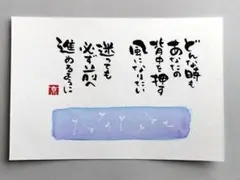 どんな時も
あなたの
背中を押す
風になりたい
迷っても
必ず前へ
進めるように